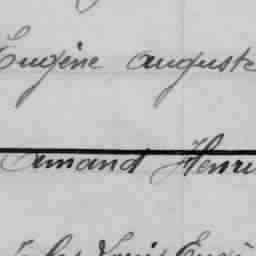 Eugène Auguste
Armand Henri
Jules Louis Eugè